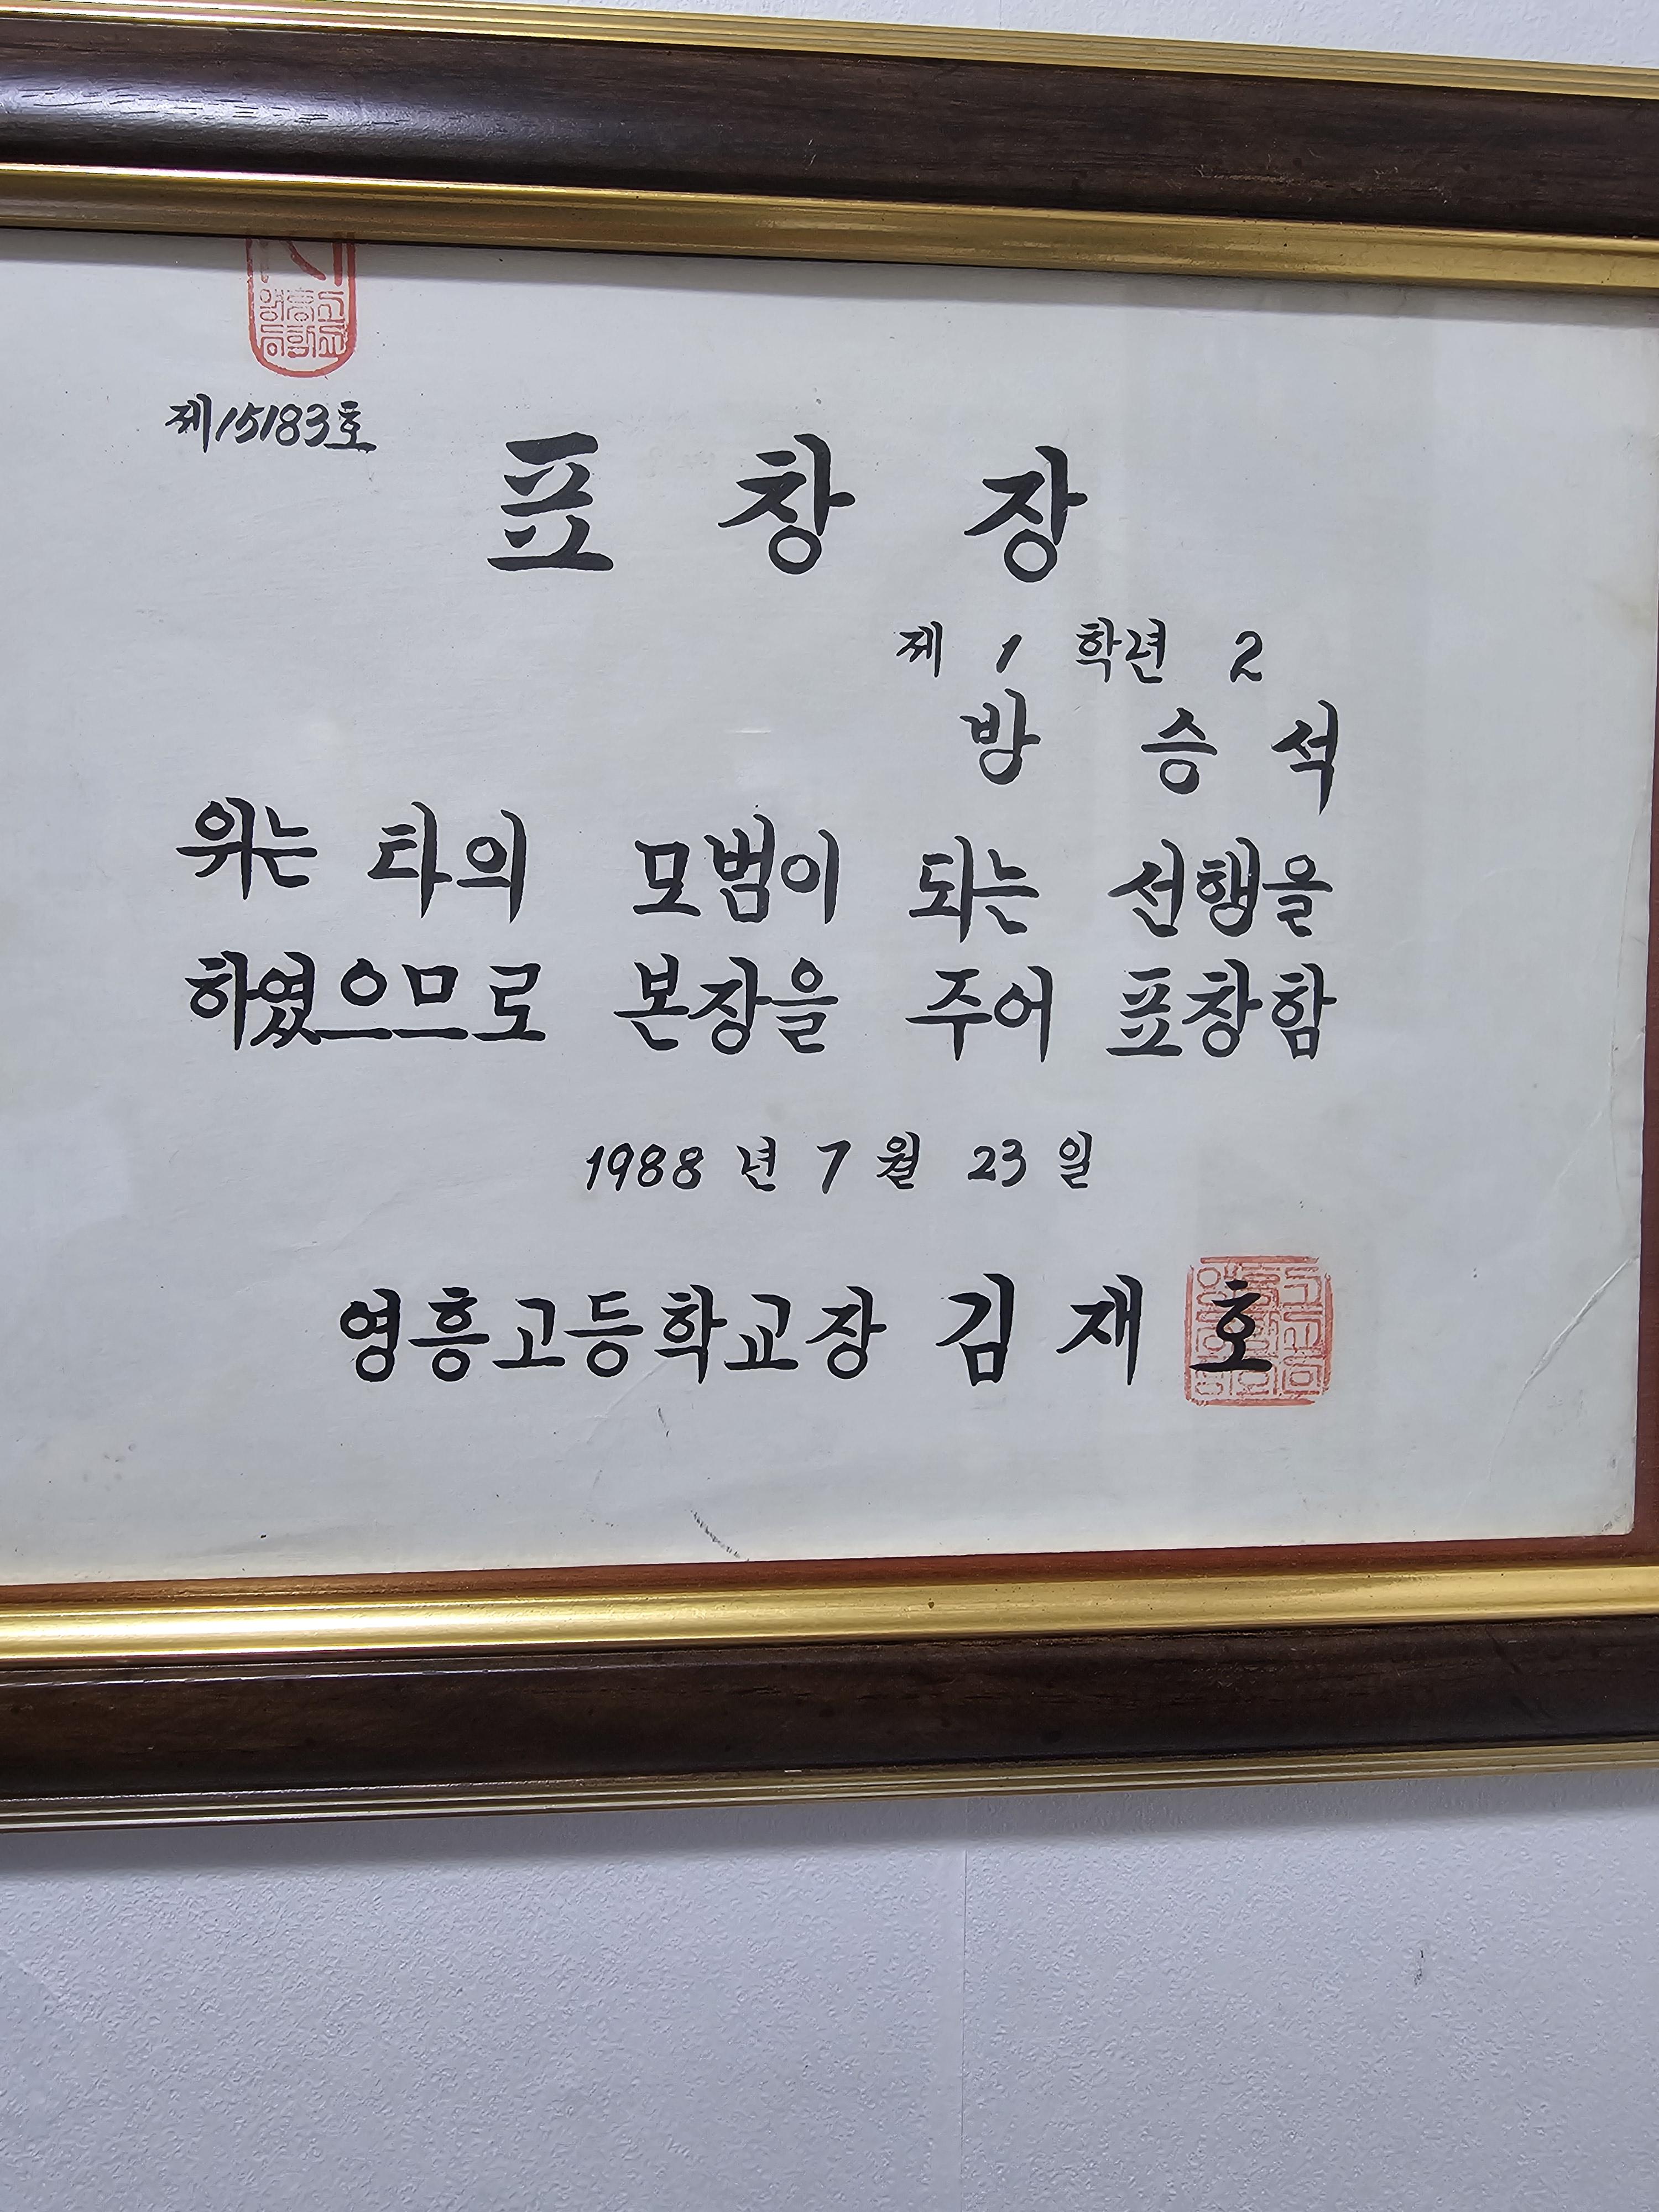 제15183호
표 창 장
제 1 학년 2
방 승 석
위는 타의 모범이 되는 선행을
하였으므로 본장을 주어 표창함
1988 년 7 월 23 일
영흥고등학교장 김 재 호